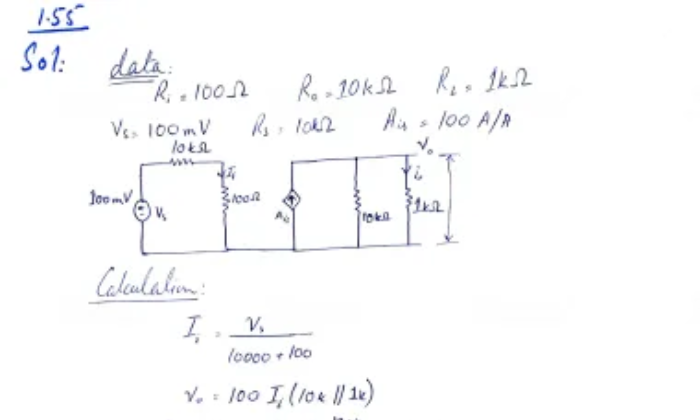 1.55
Sol:
data:
Ri = 100Ω Ro = 10kΩ RL = 1kΩ
Vs = 100mV Rs = 10kΩ Ais = 100 A/A
10kΩ
Vo
Ii
io
100mV
Vs
100Ω
Ais
10kΩ
1kΩ
Calculation:
Ii = Vs / 10000 + 100
Vo = 100 Ii (10k || 1k)